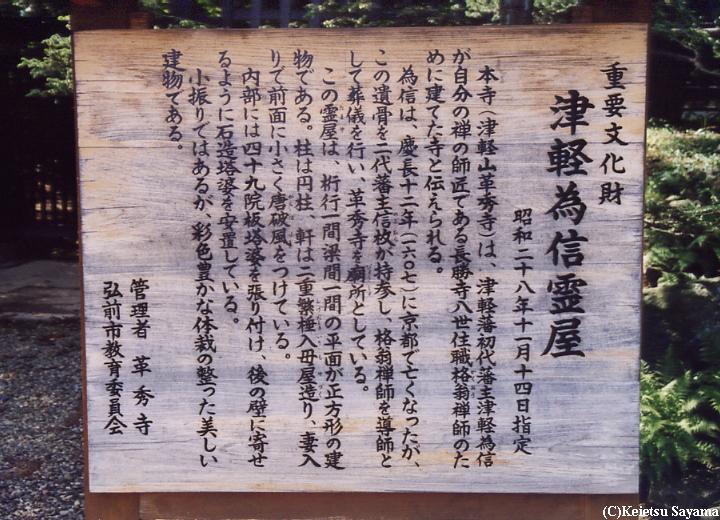 重要文化財
津軽為信霊屋
昭和二十八年十一月十四日指定
本寺（津軽山革秀寺）は、津軽藩初代藩主津軽為信
が自分の禅の師匠である長勝寺八世住職格翁禅師のた
めに建てた寺と伝えられる。
為信は、慶長十二年（一六〇七）に京都で亡くなったが、
この遺骨を二代藩主信枚が持参し、格翁禅師を導師と
して葬儀を行い、革秀寺を廟所としている。
この霊屋は、桁行一間梁間一間の平面が正方形の建
物である。柱は円柱、軒は二重繁棰入母屋造り、妻入
りで前面に小さく唐破風をつけている。
内部には四十九院板塔婆を張り付け、後の壁に寄せ
るように石造塔婆を安置している。
小振りではあるが、彩色豊かな体裁の整った美しい
建物である。
管理者 革秀寺
弘前市教育委員会
(C)Keietsu Sayama